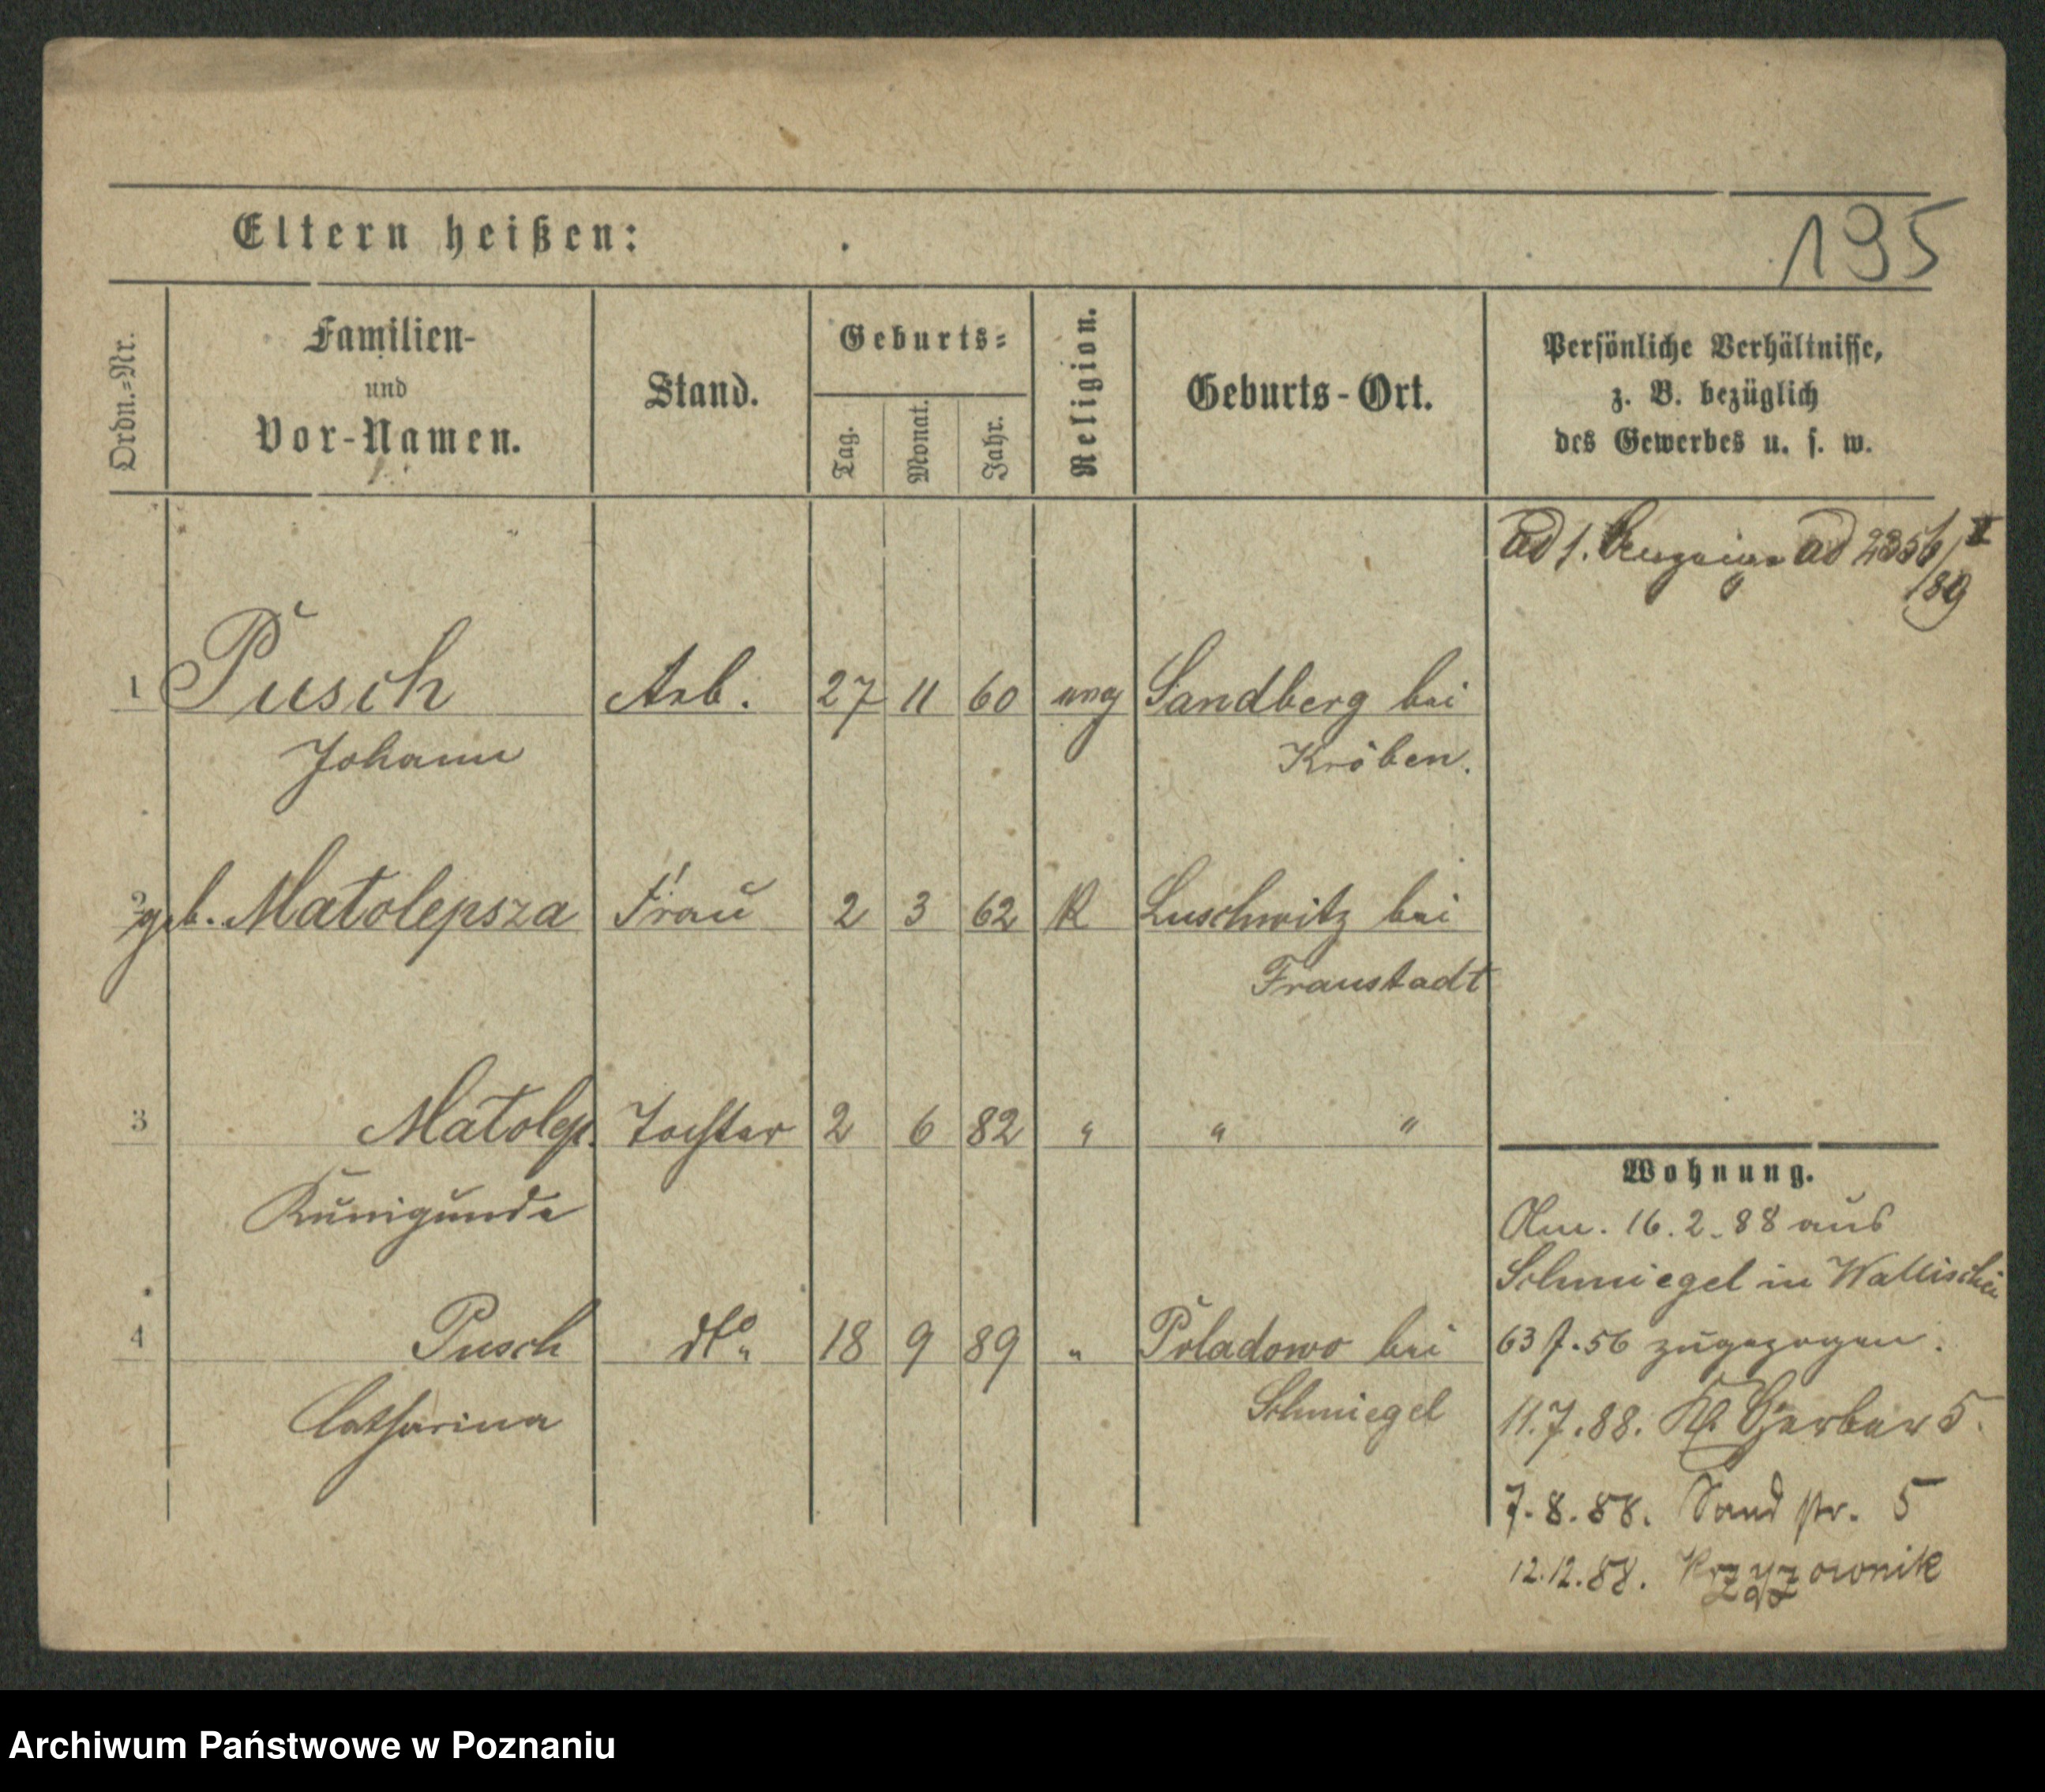 Eltern heißen:
195
Ordn.=Nr.
Familien-
und
Vor-Namen.
Stand.
Geburts=
Tag.
Monat.
Jahr.
Religion.
Geburts-Ort.
Persönliche Verhältnisse,
z. B. bezüglich
des Gewerbes u. s. w.
ad 1. ad 2356/I
/89
1 Pusch Arb. 27 11 60 Sandberg bei
Johann Kröben.
2 geb. Matolepsza Frau 2 3 62 K Luschwitz bei
Fraustadt
3 Matolep. Tochter 2 6 82 " " "
Kunigunde
4 Pusch dto " 18 9 89 " Poladowo bei
Catharina Schmiegel
Wohnung.
16.2.88 aus
Schmiegel in Wallischei
63 f. 56 zugezogen.
11.7.88. Kl. Gerber 5.
7.8.88. Sand str. 5
12.12.88. Krzyzownik
Archiwum Państwowe w Poznaniu